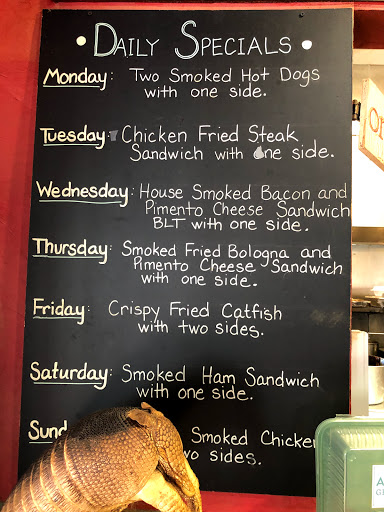 • Daily Specials •
Monday: Two Smoked Hot Dogs
with one side.
Tuesday: Chicken Fried Steak
Sandwich with one side.
Wednesday: House Smoked Bacon and
Pimento Cheese Sandwich
BLT with one side.
Thursday: Smoked Fried Bologna and
Pimento Cheese Sandwich
with one side.
Friday: Crispy Fried Catfish
with two sides.
Saturday: Smoked Ham Sandwich
with one side.
Sund Smoked Chicken
wo sides.